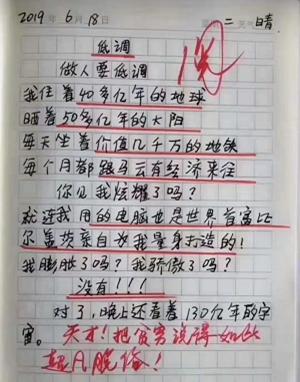 2019年6月18日 二 晴
低调
做人要低调
我住着40多亿年的地球
晒着50多亿年的太阳
每天坐着价值几千万的地铁
每个月都跟马云有经济来往
你见我炫耀了吗?
就连我用的电脑也是世界首富比
尔盖茨亲自为我量身打造的!
我膨胀了吗?我骄傲了吗?
没有!!!
对了,晚上还看着130亿年的宇
宙。天才!把贫穷说得如此
超凡脱俗!